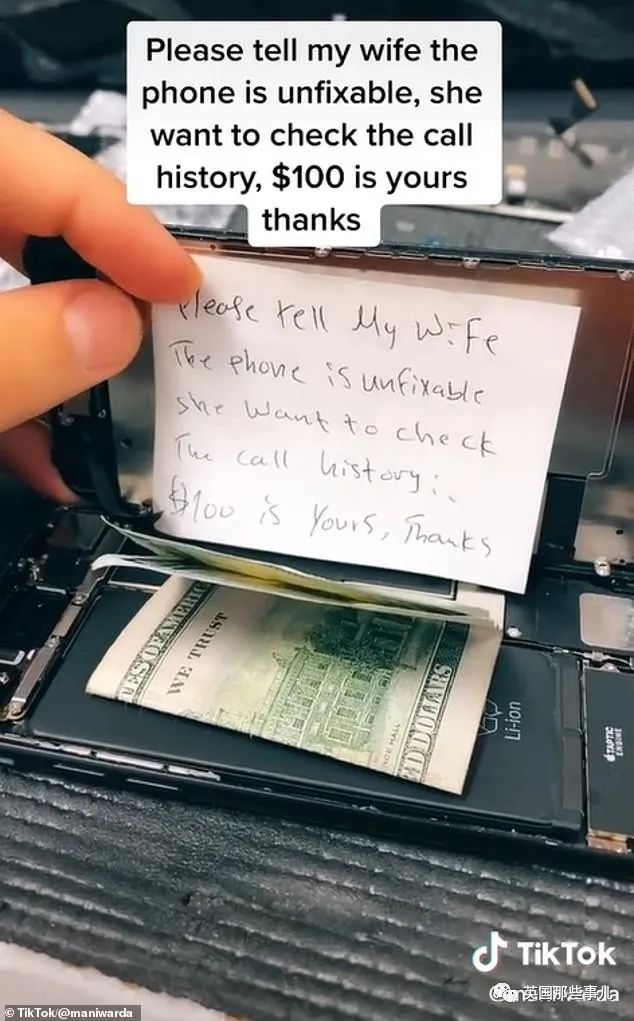 Please tell my wife the
phone is unfixable, she
want to check the call
history, $100 is yours
thanks
Please tell My Wife
The phone is unfixable
she want to check
The call history:.
$100 is Yours, Thanks
ES OF AMERIC
WE TRUST
NCE HALL
D DOLLARS
Li-ion
TAPTIC
ENGINE
TikTok
英国那些事儿
© TikTok/@maniwarda